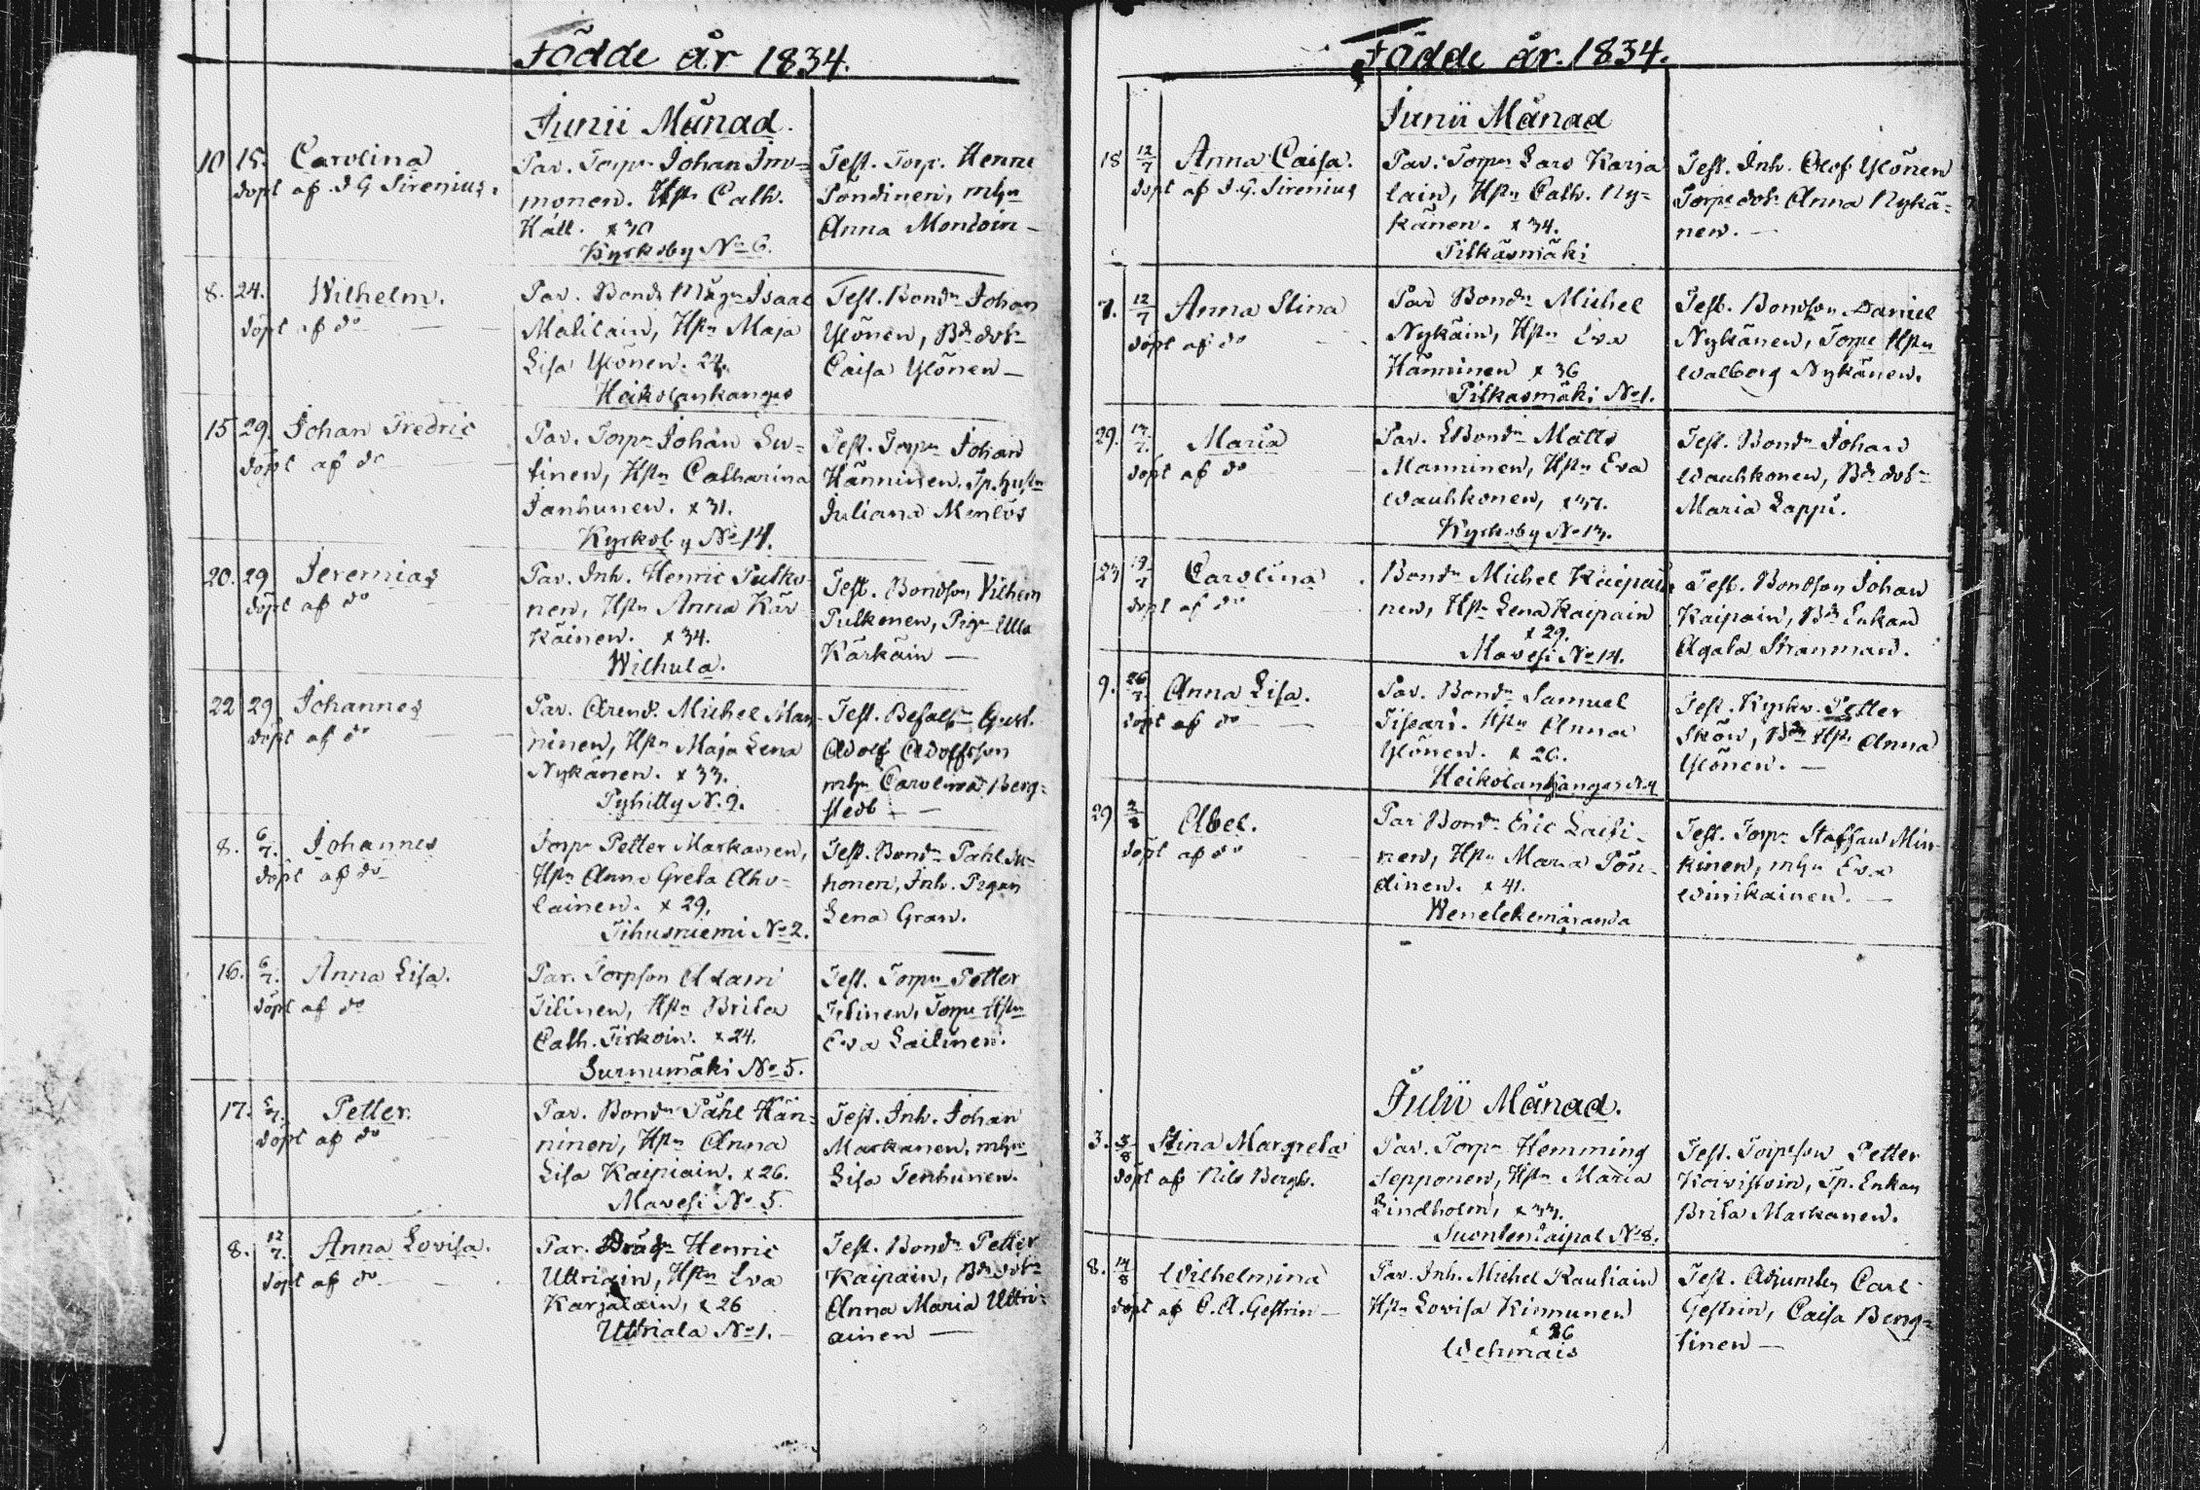 Födde år 1834.
Junii Månad.
10 15. Carolina
döpt af J G Sirenius.
Par. Torpn Johan Imo-
monen. Hstn Cath.
Häll. x 30
Kyrkoby No 6.
Test. Torp. Henric
Pöndinen, mhn
Anna Montoin -
8. 24. Wilhelm.
döpt af do
Par. Bonde Isaac
Malilain, Hstn Maja
Lisa Ylönen. 24.
Heikolankangas
Test. Bondn Johan
Ylönen, Bde dotr
Caisa Ylönen -
15 29. Johan Fredric
döpt af do
Par. Torpn Johan Su-
tinen, Hstn Catharina
Janhunen. x 31.
Kyrkoby No 14.
Test. Torpn Johan
Hänninen. Tp. hustn
Juliana
20. 29 Jeremias
döpt af do
Par. Inh. Henric Pulko-
nen, Hstn Anna Kär-
käinen. x 34.
Wilhula.
Test. Bondson Vilhelm
Pulkonen, Pign Ulla
Kärkäin -
22 29 Johannes
döpt af do
Par. Arend. Michel Man-
ninen, Hstn Maja Lena
Nykänen. x 33.
Pyhitty No 9.
Test. Befalsn Gust.
Adolf Adolfsson
mhn Carolina Berg-
stedt -
8. 6/7. Johannes
döpt af do
Torpn Petter Markanen,
Hstn Anna Greta Aho-
lainen. x 29.
Tihusniemi No 2.
Test. Bondn Påhl Su-
honen, Inh. Pigan
Lena Gran.
16. 6/7. Anna Lisa.
döpt af do
Par. Torpson Adam
Tilinen, Hstn Brita
Cath. Tirkoin. x 24.
Surnumäki No 5.
Test. Torpn Petter
Tilinen, Torpe Hstn
Eva Lailinen.
17. Petter.
döpt af do
Par. Bondn Påhl Hän-
ninen, Hstn Anna
Lisa Kaipiain. x 26.
Mavesi No 5.
Test. Inh. Johan
Markanen, mhn
Lisa Tenhunen.
8. 12/7. Anna Lovisa.
döpt af do
Par. Henric
Uttriain, Hstn Eva
Karjalain, x 26
Uttriala No 1. -
Test. Bondn Petter
Kaipain, Bde dotr
Anna Maria Uttri-
ainen -
Födde år. 1834.
Junii Månad
18 12/7 Anna Caisa.
döpt af J. G. Sirenius
Par. Torpn Lars Karja
lain, Hstn Cath. Ny-
känen. x 34.
Pitkäsmäki
Test. Inh. Olof Ylönen
Torpe dotr Anna Nykä-
nen. -
7. 12/7 Anna Stina
döpt af do
Par Bondn Michel
Nykäin, Hstn Eva
Hänninen x 36
Pitkasmäki No 1.
Test. Bondson Daniel
Nykänen, Torpe Hstn
Walborg Nykänen.
29. Maria
döpt af do
Par. Bondn Matts
Manninen, Hstn Eva
Wauhkonen, x 37.
Kyrkoby No 13.
Test. Bondn Johan
Wauhkonen, Bde dotr
Maria Lappi.
23 Carolina
döpt af do
Bondn Michel Kaipai-
nen, Hstn Lena Kaipain
x 29.
Mavesi No 14.
Test. Bondson Johan
Kaipain, Bde Enkan
Agata Stranman.
9. 26/7. Anna Lisa.
döpt af do
Par. Bondn Samuel
Tissari. Hstn Anna
Ylönen. x 26.
Heikolankangas No 4
Test. Kyrkv. Petter
Skön, Bde Hstn Anna
Ylönen. -
29 2/8 Abel.
döpt af do
Par Bondn Eric Laiti-
nen, Hstn Maria Pön-
dinen. x 41.
Wenetekemäranda
Test. Torpn Staffan Min-
kinen, mhn Eva
Winikainen. -
Julii Månad.
3. 3/8 Stina Margreta
döpt af Nils Bergh.
Par. Torpn Hemming
Sepponen, Hstn Maria
Lindholm, x 33.
Suontentaipal No 8.
Test. Torpson Petter
Koivistoin, Tp. Enkan
Brita Markanen.
8. 14/8 Wilhelmina
döpt af C. A. Gestrin -
Par. Inh. Michel Rautiain
Hstn Lovisa Kinnunen
x 26
Wehmais
Test. Adjuncten Carl
Gestrin, Caisa Beng-
tinen -